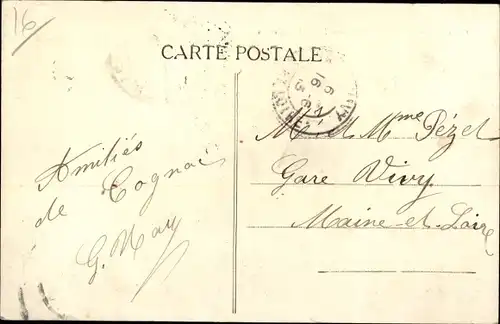 16
CARTE POSTALE
Amitiés
de Cognac
G. May
M et Mme Pézet
Gare Vivy
Maine-et-Loire